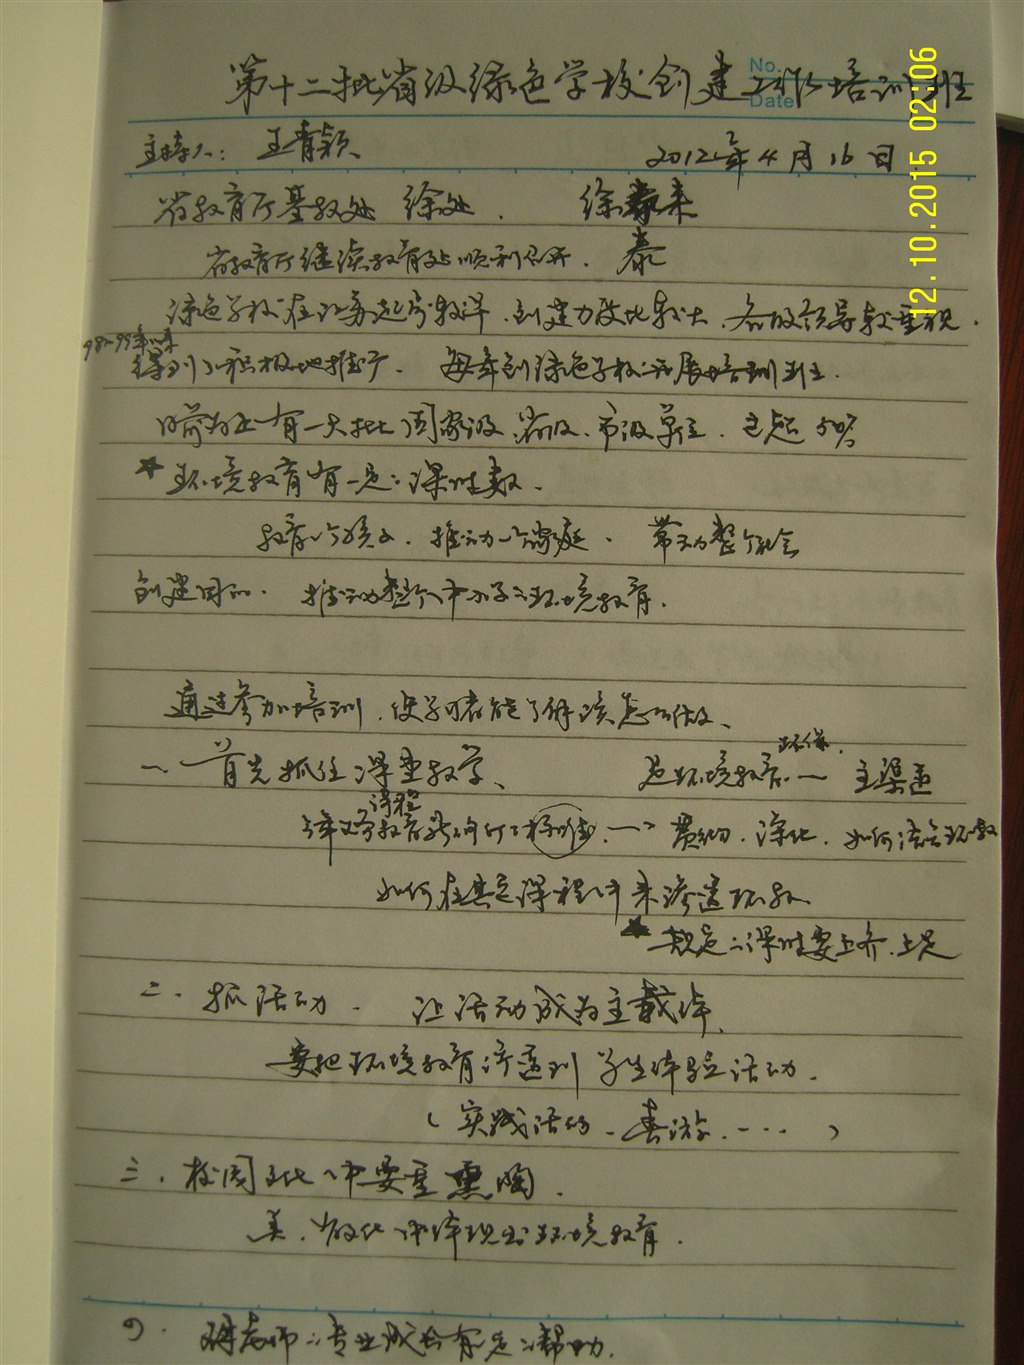 No.
Date
第十二批省级绿色学校创建工作培训班
主持人: 王青颖 2012年4月16日
省教育厅基教处 徐处. 徐泰来
省教育厅继续教育处 顺利召开. 泰
绿色学校在 起步较早.创建力度比较大.各级领导较重视.
98-99年以来
得到了积极地推广. 每年创绿色学校都开展培训班.
目前为止有一大批国家级.省级.市级单位.已超
★环境教育有一定课时数.
教育一个孩子.推动一个家庭.带动整个社会
创建目的.推动整个中小学环境教育.
通过参加培训,使学习者能了解该怎么做.
一 首先抓住课堂教学、 是环境教育 主渠道
环保.
课程
标准 贯彻.深化.如何结合环教
如何在其它课程中来渗透环教
★规定课时要上齐.上足
二.抓活动. 让活动成为主载体.
要把环境教育渗透到学生体验活动.
(实践活动.春游. ....)
三.校园文化中要重熏陶.
美.文化中体现出环境教育.
四. 对老师专业成长有一定帮助.
12.10.2015 02:06